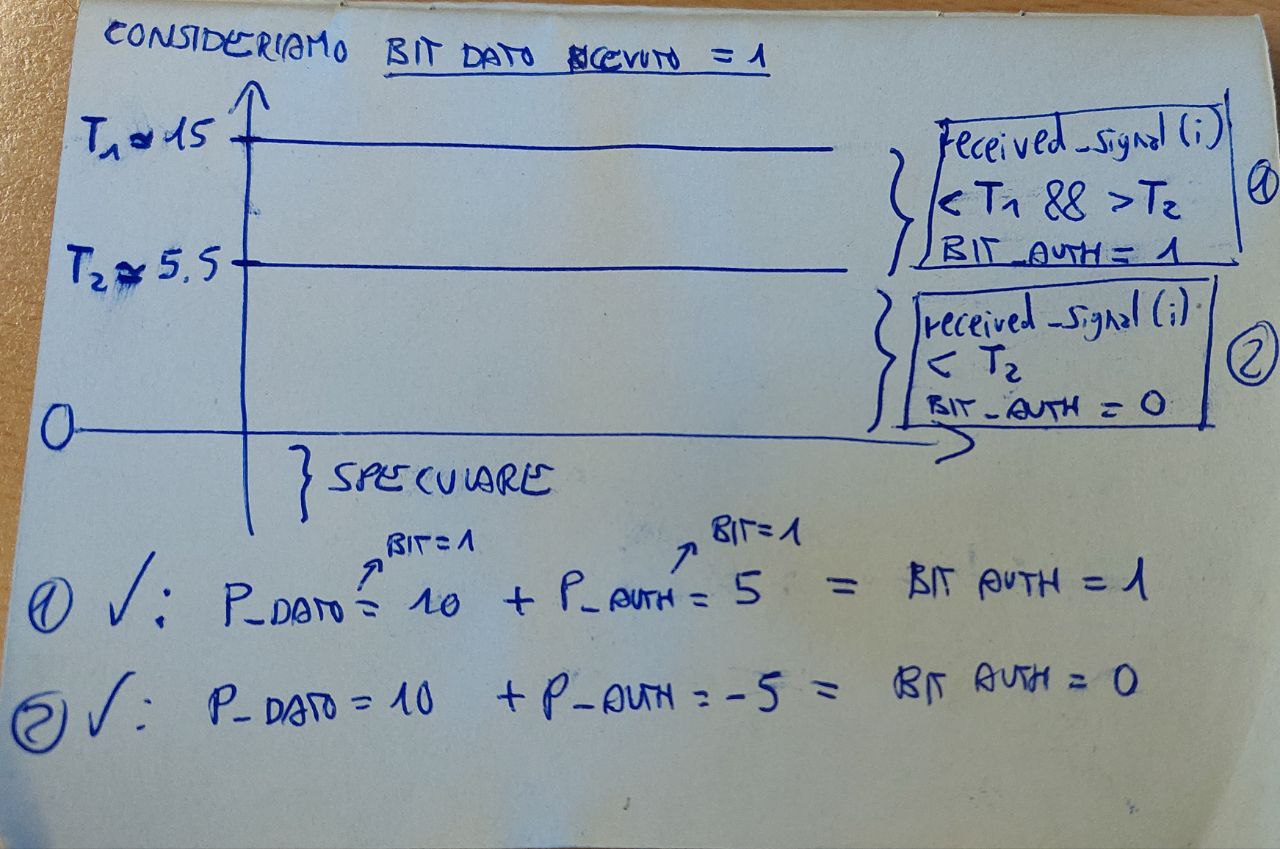 CONSIDERIAMO BIT DATO RICEVUTO = 1
T₁ ≃ 15
received_signal(i)
< T₁ && > T₂
BIT_AUTH = 1
①
T₂ ≃ 5.5
received_signal(i)
< T₂
BIT_AUTH = 0
②
0
} SPECULARE
BIT=1
BIT=1
① ✓: P_DATO = 10 + P_AUTH = 5 = BIT AUTH = 1
② ✓: P_DATO = 10 + P_AUTH = -5 = BIT AUTH = 0